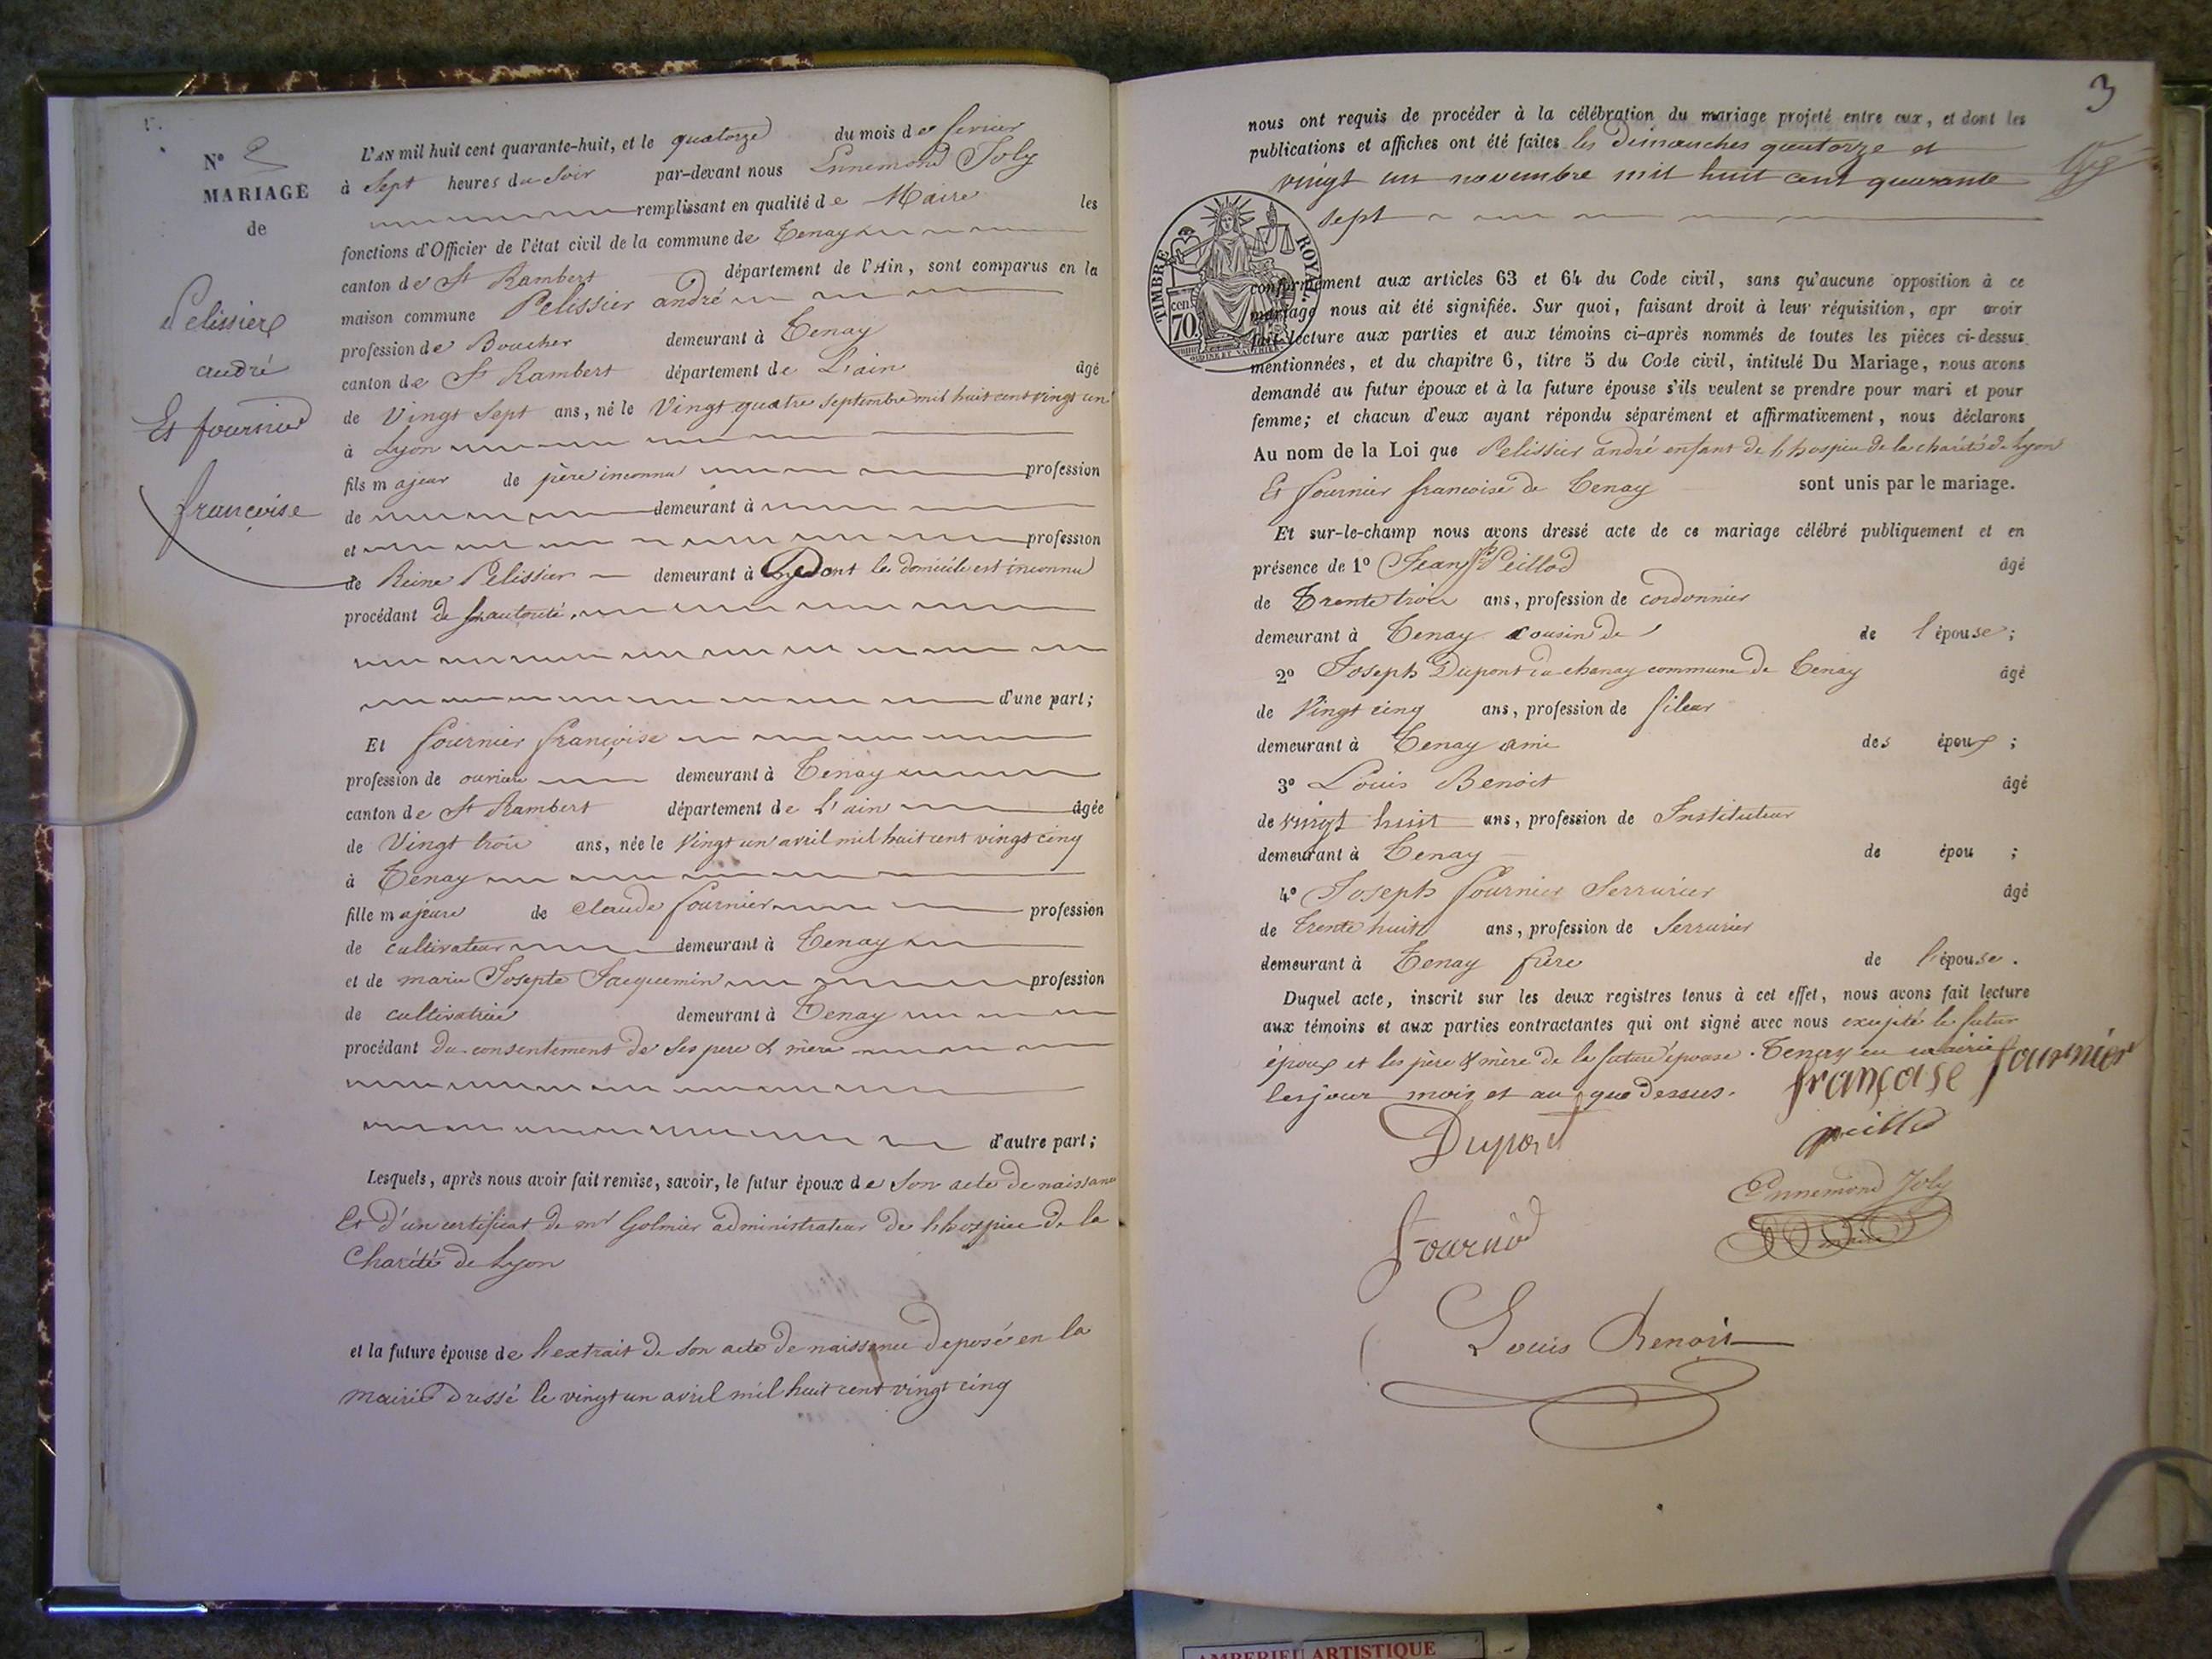 N° 2
MARIAGE
de
Pelissier
andré
Et fournier
francoise
L'AN mil huit cent quarante-huit, et le quatorze du mois de fevrier
à Sept heures du Soir par-devant nous Ennemond Joly
remplissant en qualité de Maire les
fonctions d'Officier de l'état civil de la commune de Tenay
canton de St Rambert département de l'Ain, sont comparus en la
maison commune Pelissier andré
profession de Boucher demeurant à Tenay
canton de St Rambert département de L'ain âgé
de Vingt Sept ans, né le Vingt quatre septembre mil huit cent vingt un
à Lyon
fils majeur de père inconnu profession
de demeurant à
et profession
de Reine Pelissier demeurant à dont le domicile est inconnu
procédant de son autorité
d'une part;
Et fournier françoise
profession de ouvriere demeurant à Tenay
canton de St Rambert département de l'ain âgée
de Vingt trois ans, née le Vingt un avril mil huit cent vingt cinq
à Tenay
fille majeure de claude fournier profession
de cultivateur demeurant à Tenay
et de marie Josepte Jacquemin profession
de cultivatrice demeurant à Tenay
procédant du consentement de Ses pere & mère
d'autre part;
Lesquels, après nous avoir fait remise, savoir, le futur époux de Son acte de naissance
Et d'un certificat de mr Golmier administrateur de l'hospice de la
Charité de Lyon
et la future épouse de l'extrait de Son acte de naissance deposé en la
mairie Dressé le vingt un avril mil huit cent vingt cinq
3
nous ont requis de procéder à la célébration du mariage projeté entre eux, et dont les
publications et affiches ont été faites les Dimanches quatorze et
vingt un novembre mil huit cent quarante
sept
TIMBRE ROYAL
cen 70
conformément aux articles 63 et 64 du Code civil, sans qu'aucune opposition à ce
mariage nous ait été signifiée. Sur quoi, faisant droit à leur réquisition, apr avoir
fait lecture aux parties et aux témoins ci-après nommés de toutes les pièces ci-dessus
mentionnées, et du chapitre 6, titre 5 du Code civil, intitulé Du Mariage, nous avons
demandé au futur époux et à la future épouse s'ils veulent se prendre pour mari et pour
femme; et chacun d'eux ayant répondu séparément et affirmativement, nous déclarons
Au nom de la Loi que Pelissier andré enfant de l'hospice de la charité de Lyon
Et fournier francoise de Tenay sont unis par le mariage.
Et sur-le-champ nous avons dressé acte de ce mariage célébré publiquement et en
présence de 1° Jean Peillod âgé
de Trente trois ans, profession de cordonnier
demeurant à Tenay cousin de de l'épouse;
2° Joseph Dupont du chanay commune de Tenay âgé
de Vingt cinq ans, profession de fileur
demeurant à Tenay ami des époux;
3° Louis Benoit âgé
de vingt huit ans, profession de Instituteur
demeurant à Tenay de épou ;
4° Joseph fournier Serrurier âgé
de trente huit ans, profession de Serrurier
demeurant à Tenay frère de l'épouse.
Duquel acte, inscrit sur les deux registres tenus à cet effet, nous avons fait lecture
aux témoins et aux parties contractantes qui ont signé avec nous excepté le futur
époux et les père & mère de la future épouse. Tenay en mairie
les jour mois et an que Dessus. françoise fournier
Dupont
peillod
Ennemond Joly
maire
Louis Benoit
AMBERIEU ARTISTIQUE